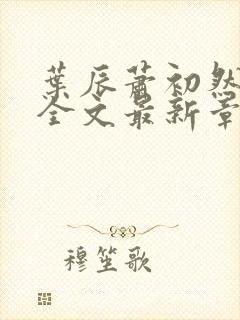 葉辰蕭初然
全文最新章
穆笙歌